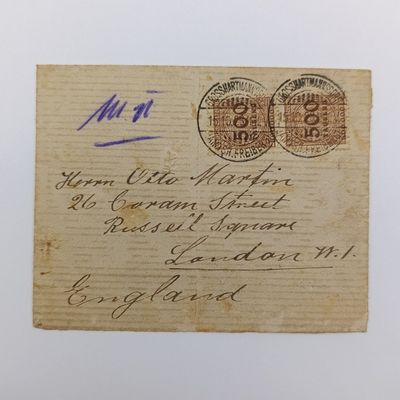 GROSSHARTMANNSDORF
500
500
Herrn Otto Martin
26 Coram Street
Russell Square
London W.1.
England